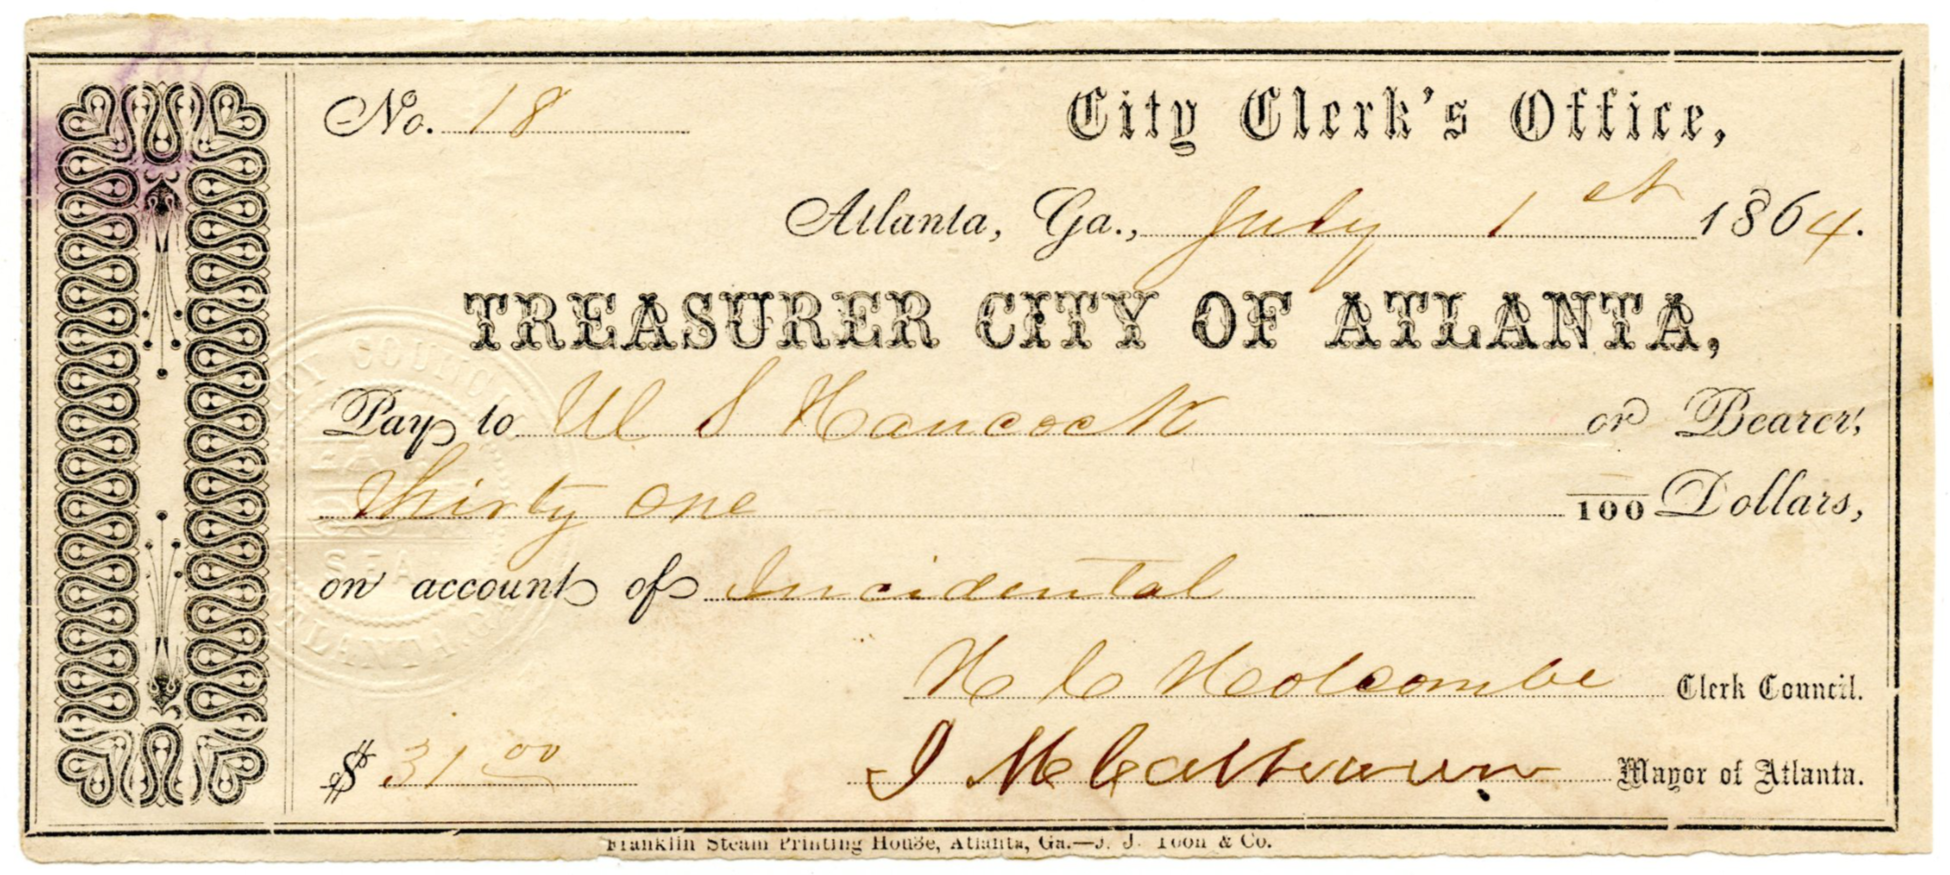 No. 18
City Clerk's Office,
Atlanta, Ga., July 1st 1864.
TREASURER CITY OF ATLANTA,
Pay to W S Hancock or Bearer,
Thirty one 100 Dollars,
on account of Incidental
H C Holcombe Clerk Council.
$ 31 00 J M Calhoun Mayor of Atlanta.
Franklin Steam Printing House, Atlanta, Ga.—J. J. Toon & Co.
COUNCIL
SEAL
ATLANTA, GA